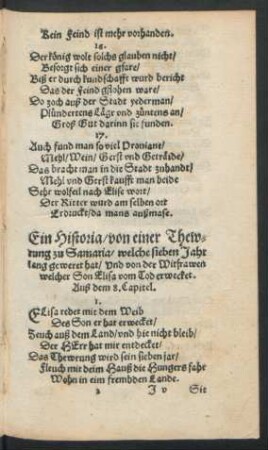 Kein Feind ist mehr vorhanden.
16.
Der könig wolt solchs glauben nicht/
Besorgt sich einer gfare/
Beß er durch kundschafft wurd bericht
Das der Feind gflohen ware/
Do zoch auß der Stadt yederman/
Plündertens Läge vnd zůntens an/
Groß Gut darinn sie funden.
17.
Auch fund man so viel Prouiant/
Mehl/Wein/Gerst vnd Getråide/
Das bracht man in die Stadt zuhandt/
Mehl vnd Gerst kaufft man beide
Sehr wolfeil nach Elise wort/
Der Ritter ward am selben ort
Erdruckt/da mans außmase.
Ein Historia/von einer Thew-
rung zu Samaria/welche sieben Jahr
lang geweret hat/Vnd von der Witfrawen
welcher Son Elisa vom Tod erwecket.
Auß dem 8. Capitel.
1.
ELisa redet mit dem Weib
Des Son er hat erwecket/
Zeuch auß dem Land/vnd hie nicht bleib/
Der HErr hat mir entdecket/
Das Thewrung wird sein sieben jar/
Fleuch mit deim Hauß die Hungers fahr
Wohn in eim frembden Lande.
J v Sie